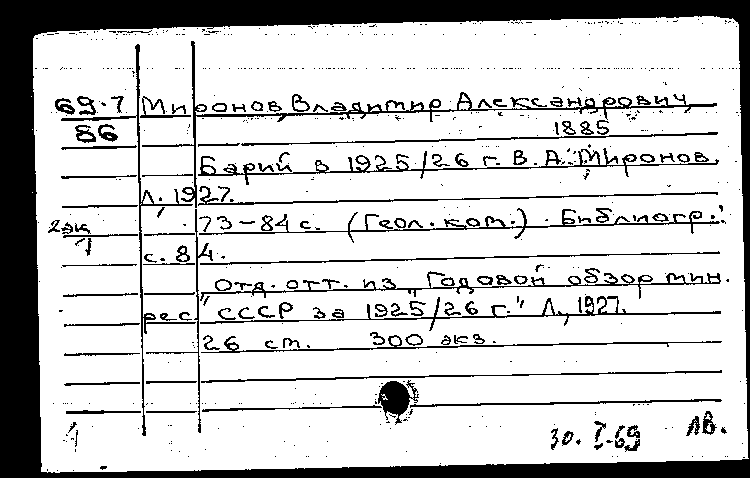 69.7 Миронов, Владимир Александрович,
86 1885
Барий в 1925/26 г. В. А. Миронов.
Л., 1927.
2 эк 73-84 с. (Геол. ком.). Библиогр.:
1 с. 84.
Отд. отт. из „Годовой обзор мин.
рес. СССР за 1925/26 г." Л., 1927.
26 см. 300 экз.
30. I-69 ЛВ.